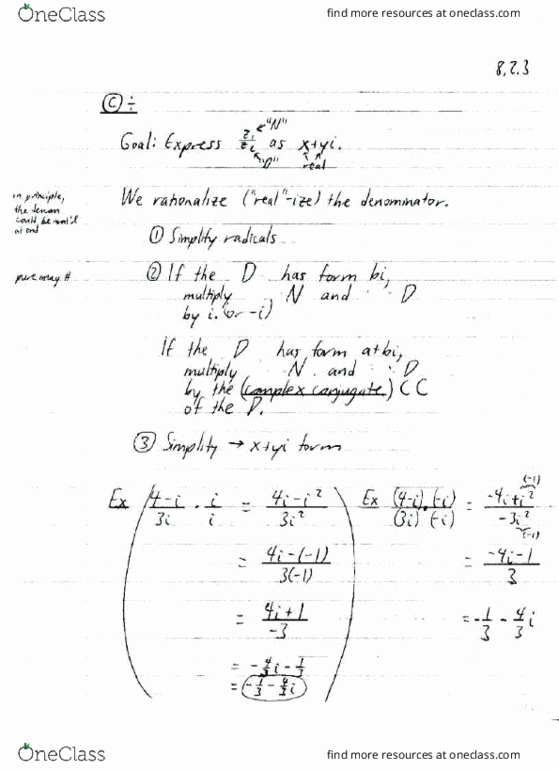 OneClass
find more resources at oneclass.com
8.2.3
Ⓒ ÷
"N"
Goal: Express z₁/z₂ as x+yi.
"D" real
in principle,
the denom
could be real'd
at end
We rationalize ("real"-ize) the denominator.
① Simplify radicals
② If the D has form bi,
multiply N and D
by i. (or -i)
If the D has form a+bi,
multiply N and D
by the (complex conjugate) CC
of the D.
③ Simplify → x+yi form
Ex (4-i)/(3i) · i/i = (4i-i²)/(3i²)
= (4i-(-1))/(3(-1))
= (4i+1)/(-3)
= -4/3 i - 1/3
= -1/3 - 4/3 i
Ex (4-i)/(3i) · (-i)/(-i) = (-4i+i²)/(-3i²)
(-1)
(-1)
= (-4i-1)/3
= -1/3 - 4/3 i
OneClass
find more resources at oneclass.com